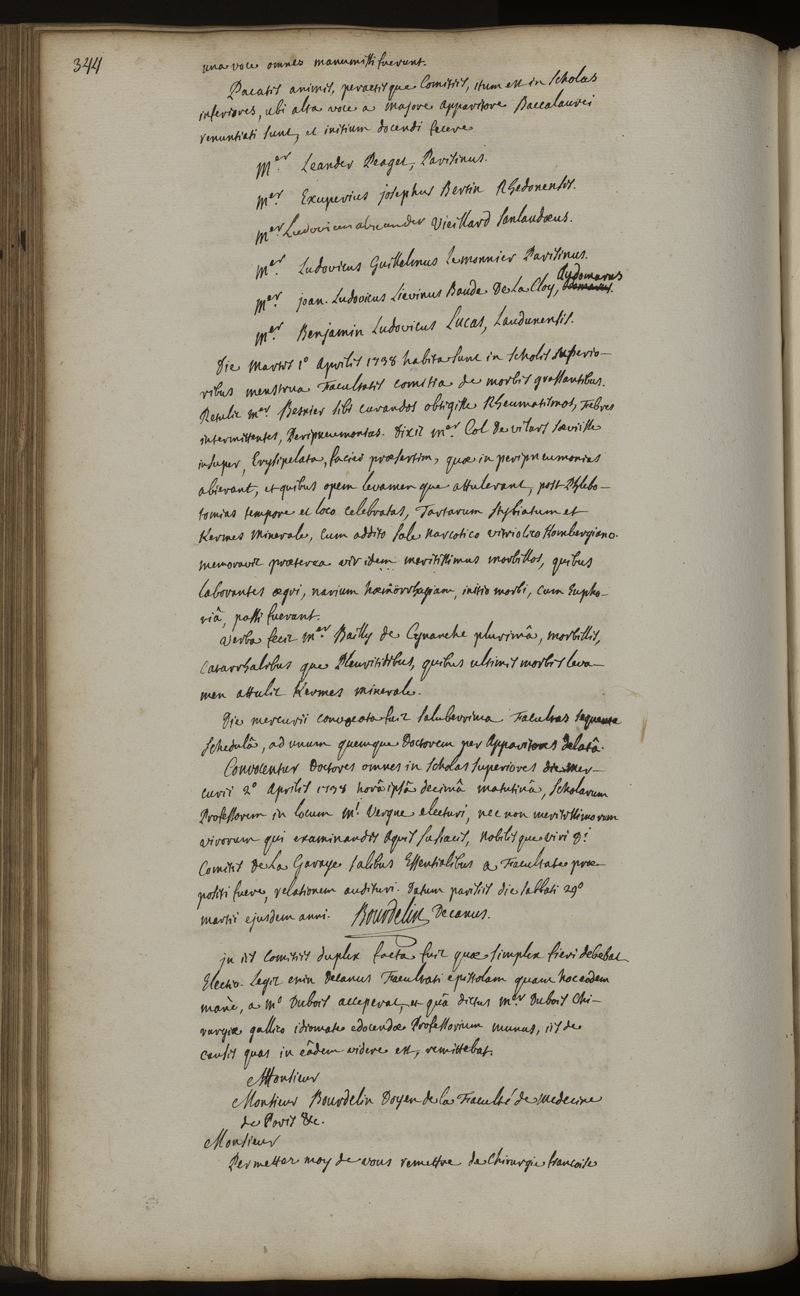 344
una voce omnes manumissi fuerunt.
Pacatis animis, peractisque Comitiis, itum est in scholas
inferiores, ubi alta voce a majore apparitore Baccalaurei
renuntiati sunt, et initium docendi fecere
Mer Leander Peaget, Parisinus.
Mer Exuperius josephus Bertin Rhedonensis.
Mer Ludovicus alexander Vieillard Sanlaudæus.
Mer Ludovicus Guillelmus Lemonnier Parisinus.
Mer joan. Ludovicus Lievinus Baude De La Cloy, Audomarus
Mer Benjamin Ludovicus Lucas, Laudunensis.
Die Martis 1º Aprilis 1738 habita sunt in scholis superio-
ribus menstrua Facultatis comitia de morbis grassantibus.
Retulit mer Besnier sibi curandos obtigisse Rheumatismos, Febres
intermittentes, Peripneumonias. Dixit mer Col de vilars sæviisse
insuper, Erysipelata, faciei præsertim, quæ in peripneumonias
abierant, et quibus opem levamenque attulerant, post Phlebo-
tomias tempore et loco celebratas, Tartarum stybiatum et
Kermes minerale, cum addito sale narcotico vitriolico Hombergiano.
memoravit præterea vir idem meritissimus morbillos, quibus
laborantes ægri, narium hæmorrhagiam, initio morbi, cum Eupho-
riâ, passi fuerant.
Verba fecit mer Bailly de Cynanche plurimâ, morbillis,
Catarrhalibus que Pleuritidibus, quibus ultimis morbis leva-
men attulit Kermes minerale.
Die mercurii convocata fuit saluberrima Facultas sequente
schedulâ, ad unum quemque Doctorem per Apparitores delatâ.
Convocentur Doctores omnes in scholas superiores die Mer-
curii 2º Aprilis 1738 horâ ipsâ decimâ matutinâ, scholarum
Professorem in locum Mi Vergne electuri, nec non meritissimorum
virorum qui examinandis aquis, nobilisque viri Di
Comitis De La Garaye salibus Essentialibus a Facultate præ-
positi fuere, relationem audituri. Datum parisiis die sabbati 29º
martii ejusdem anni. Bourdelin Decanus.
jn iis Comitiis duplex facta fuit quæ simplex fieri debebat
Electio. Legit enim Decanus Facultati epistolam quam hoc eodem
manè, a Mo Dubois acceperat, et quâ dictus Mer Dubois Chi-
rurgiæ gallico idiomate edocendæ Professorium munus, iis de
causis quas in eâdem videre est, remittebat.
Monsieur
Monsieur Bourdelin Doyen de la Faculté de Medecine
de Paris &c.
Monsieur
Permettez moy de vous remettre la Chirurgie francoise